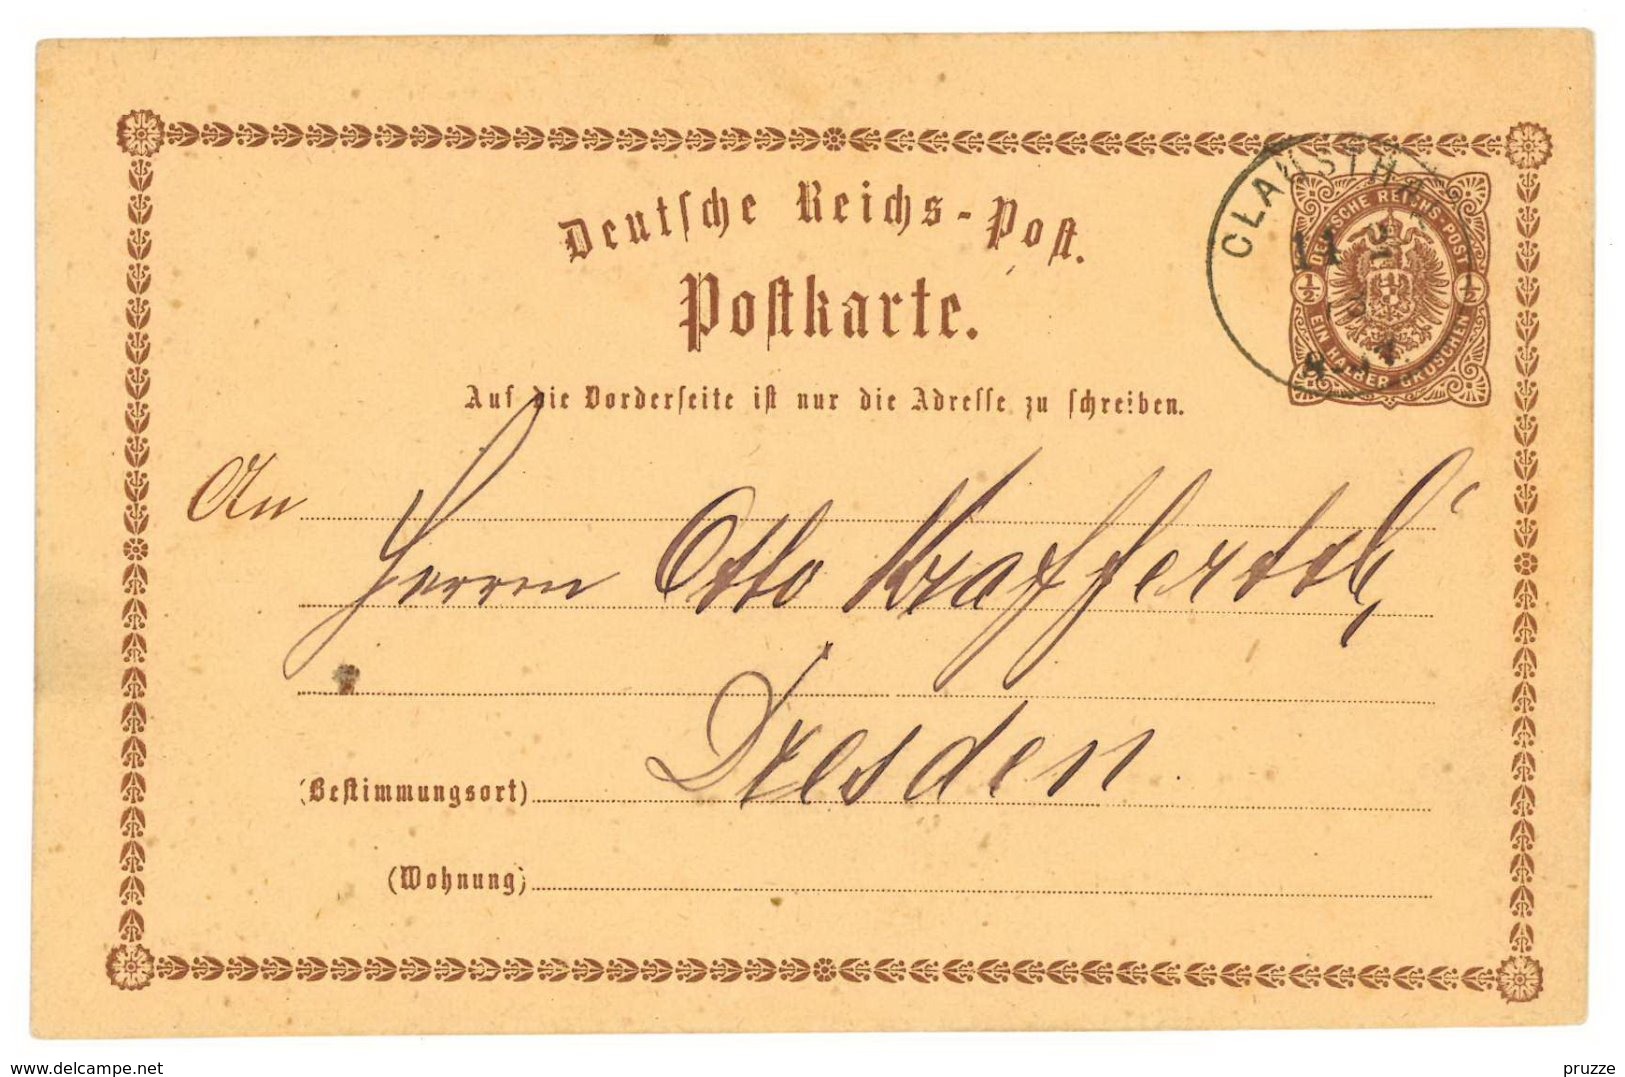 Deutsche Reichs-Post.
Postkarte.
CLAUSTHAL
DEUTSCHE REICHS-POST
½ ½
EIN HALBER GROSCHEN
Auf die Vorderseite ist nur die Adresse zu schreiben.
An
Herrn Otto
Dresden.
(Bestimmungsort)
(Wohnung)
www.delcampe.net
pruzze